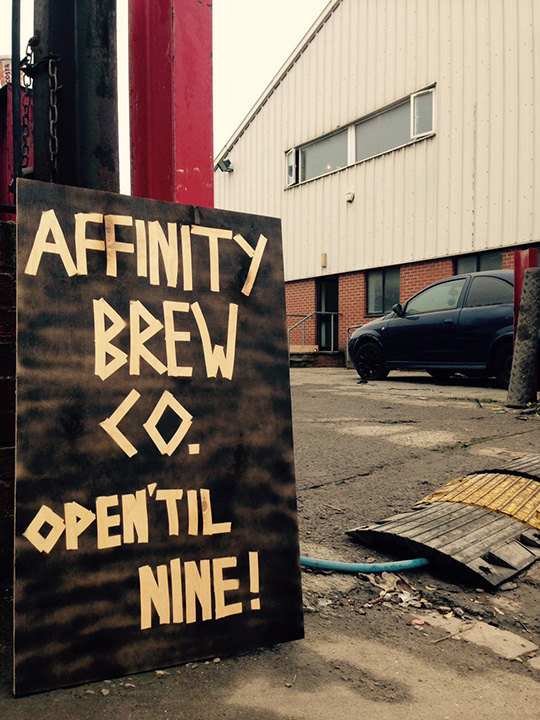 AFFINITY
BREW
CO.
OPEN 'TIL
NINE!
COSTA